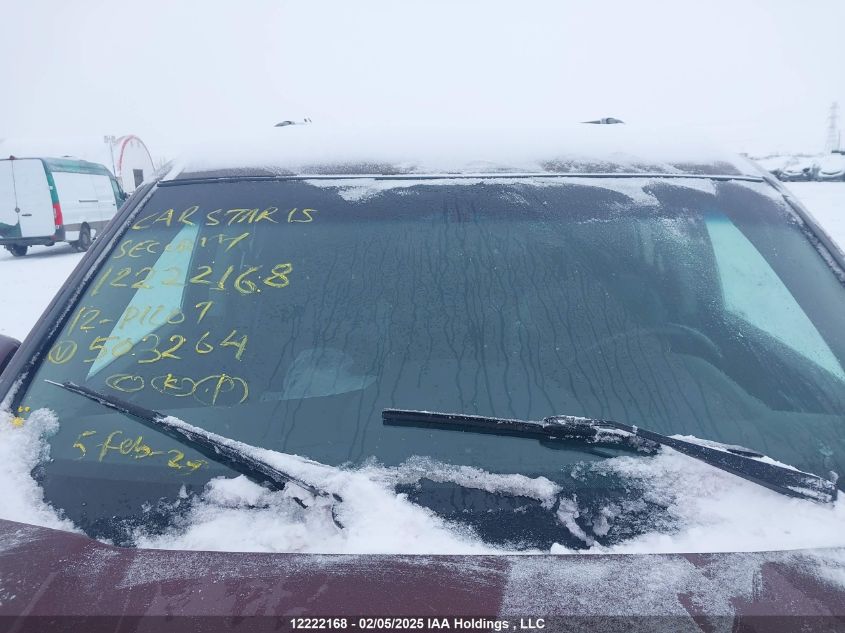 CARSTAR IS
SECURITY
12222168
12-PILOT
V 503264
O K P
5 feb-25
12222168 - 02/05/2025 IAA Holdings , LLC